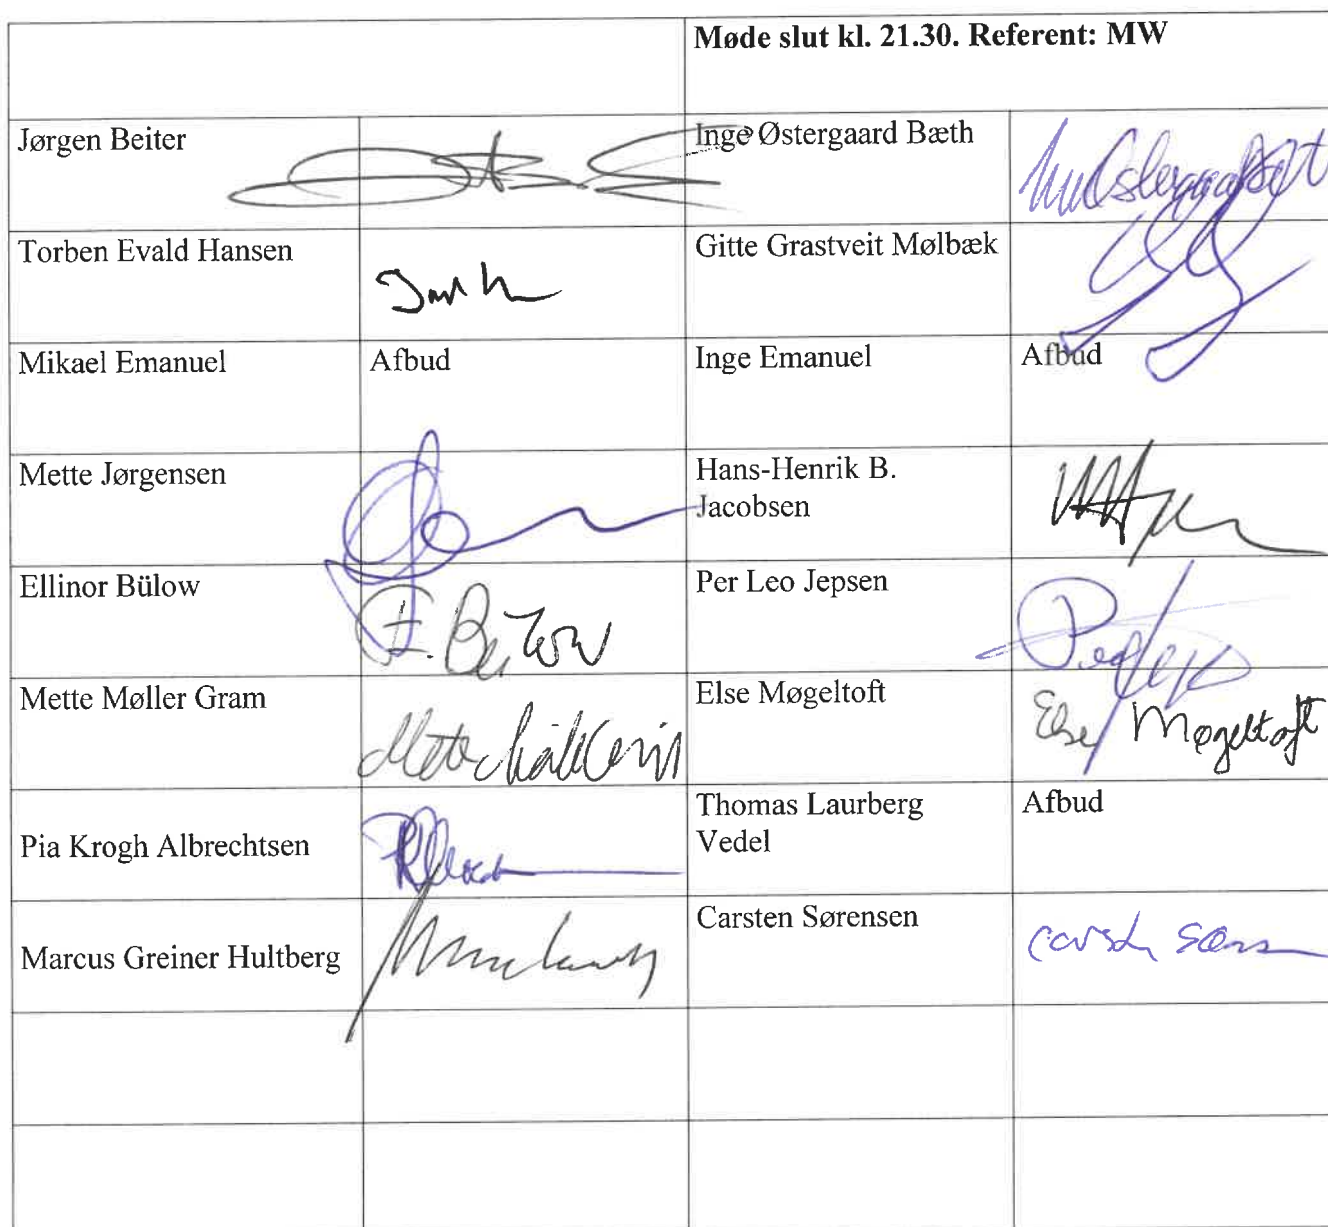 Møde slut kl. 21.30. Referent: MW
Jørgen Beiter
Inge Østergaard Bæth
Torben Evald Hansen
Gitte Grastveit Mølbæk
Mikael Emanuel
Afbud
Inge Emanuel
Afbud
Mette Jørgensen
Hans-Henrik B.
Jacobsen
Ellinor Bülow
E. Bülow
Per Leo Jepsen
Mette Møller Gram
Else Møgeltoft
Else Møgeltoft
Pia Krogh Albrechtsen
Thomas Laurberg
Vedel
Afbud
Marcus Greiner Hultberg
Carsten Sørensen